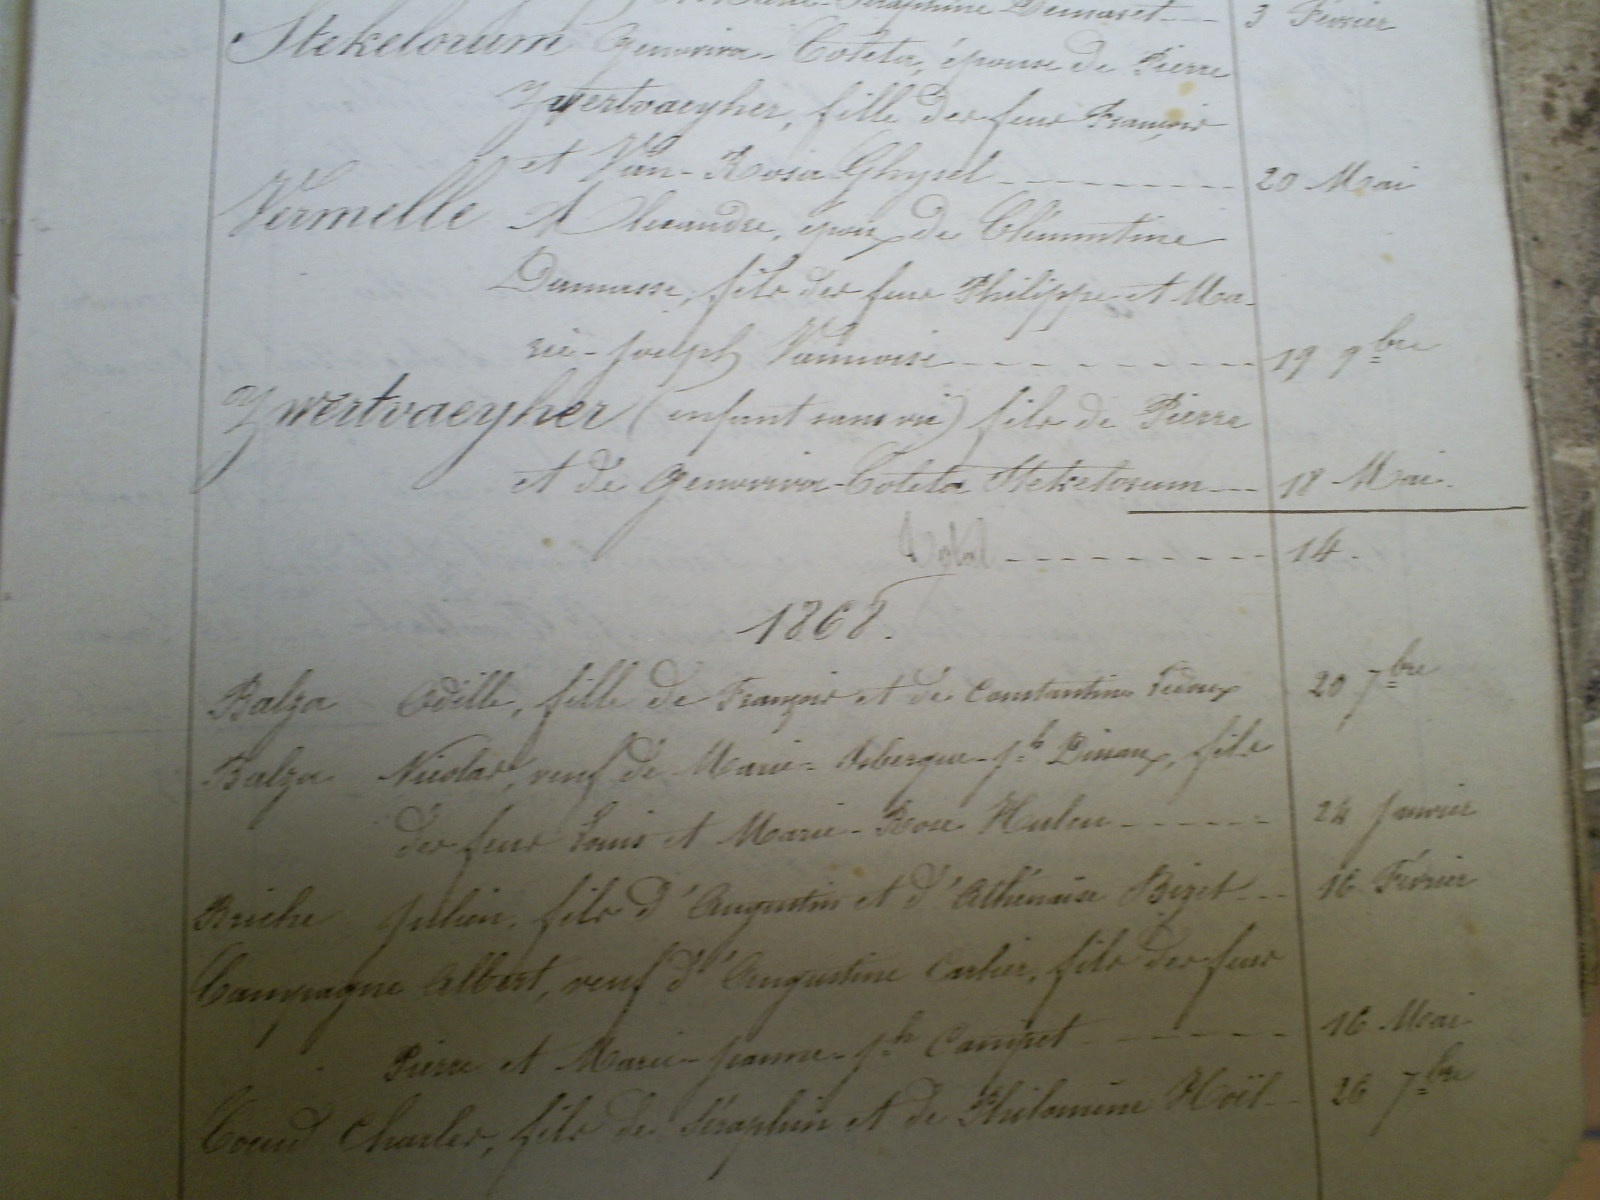 Séraphine Demaret --- 3 Février
Stekelorum Genoviva-Coleta, épouse de Pierre
Zwertvaeyher, fille des feus François
et Van-Rosa Ghysel --- 20 Mai
Vermelle Alexandre, époux de Clémentine
Damasse, fils des feus Philippe et Ma-
rie-Joseph Vannoise --- 19 9bre
Zwertvaeyher (enfant sans vie) fils de Pierre
et de Genoviva-Coleta Stekelorum --- 18 Mai.
Total --- 14.
1868.
Balza Odille, fille de François et de Constantine 20 7bre
Balza Nicolas, veuf de Marie- -jh Pinaux, fils
des feus Louis et Marie-Rose Huleu --- 24 Janvier
Briche Julien, fils d'Augustin et d'Athénaïse Bizet --- 16 Février
Campagne Albert, veuf d'Augustine Carlier, fils des feus
Pierre et Marie-Jeanne-jh Campet --- 16 Mai
Charles, fils de Séraphin et de Philomène Noël --- 26 7bre